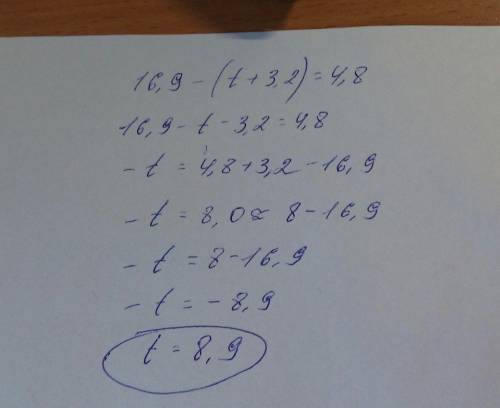 16,9 - (t + 3,2) = 4,8
16,9 - t - 3,2 = 4,8
- t = 4,8 + 3,2 - 16,9
- t = 8,0 ≈ 8 - 16,9
- t = 8 - 16,9
- t = - 8,9
t = 8,9